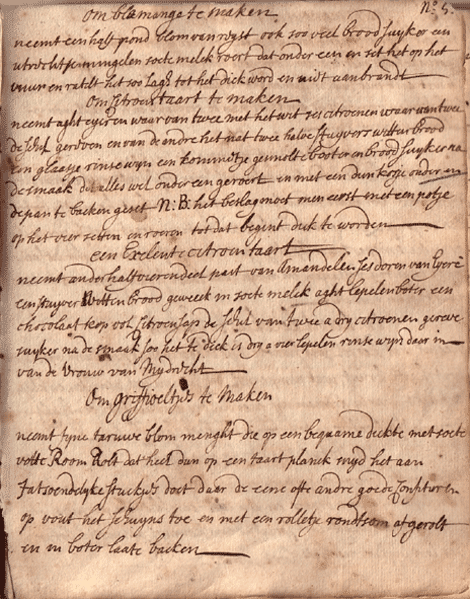 No: 5.
om blamange te maken
neemt een half pond blom van ryst ook soo veel brood suyker een
uitrechtse mingelen soete melck roert dat onder een en set het op het
vuur en ratelt het soo lagh tot het dick word en niet aanbrandt
om sitroen taart te maken
neemt aght eyeren waar van twee met het wit ses citroenen waar van twee
de schil gereven en van de andre het nat twee halve stuyvers witte brood
een glaasje rinse wyn een kommetje gesmolte boter en brood suyker na
de smaak dit alles wel onder een geroert en met een dun korsje onder in
de pan te backen geset N:B: het beslag moet men eerst met een potje
op het vier setten en roeren tot dat begint dick te worden
een Exelente citroen taart
neemt anderhalf vierendeel part van Amandelen ses doren van Eyere
een stuyver Witten brood geweeck in soete melck aght lepelen boter een
chocolaat kop vol sitroen sap de schil van twee a dry citroenen gereve
suyker na de smaak soo het te dick is dry a vier lepelen rense wyn daar in
van de Vrouw van Mydrecht
Om griffioeltjes te Maken
neemt fyne taruwe blom menght die op een bequame dickte met soete
volle Room Rolt dat heel dun op een taart planck snyd het aan
fatsoendelyke stuckjes doet daar de eene ofte andre goede
op vout het schuyns toe en met een rolletje rondtsom afgerolt
en in boter laate backen